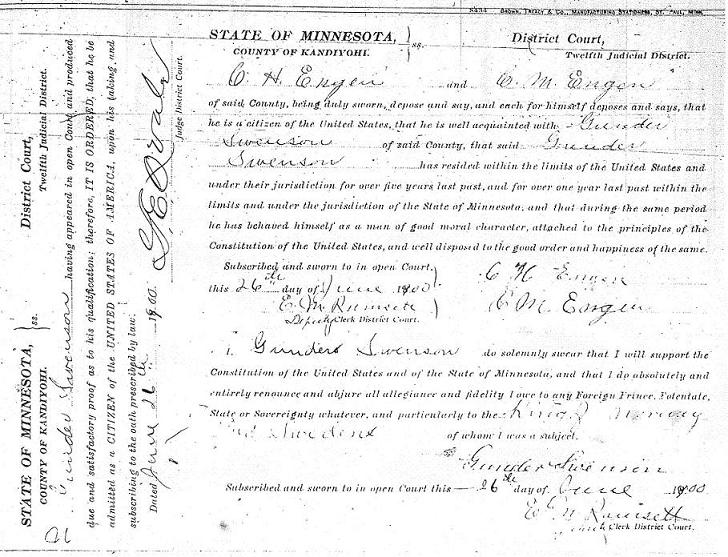 BROWN, TREACY & CO., MANUFACTURING STATIONERS, ST. PAUL, MINN.
STATE OF MINNESOTA, } ss. District Court,
COUNTY OF KANDIYOHI. Twelfth Judicial District.
C. H. Engen and C. M. Engen
of said County, being duly sworn, depose and say, and each for himself deposes and says, that
he is a citizen of the United States, that he is well acquainted with Gunder
Swenson of said County, that said Gunder
Swenson has resided within the limits of the United States and
under their jurisdiction for over five years last past, and for over one year last past within the
limits and under the jurisdiction of the State of Minnesota, and that during the same period
he has behaved himself as a man of good moral character, attached to the principles of the
Constitution of the United States, and well disposed to the good order and happiness of the same.
Subscribed and sworn to in open Court, } C H Engen
this 26th day of June 1900 C M Engen
E. M. Ramsett
Deputy Clerk District Court.
I, Gunder Swenson do solemnly swear that I will support the
Constitution of the United States and of the State of Minnesota, and that I do absolutely and
entirely renounce and abjure all allegiance and fidelity I owe to any Foreign Prince, Potentate,
State or Sovereignty whatever, and particularly to the King of Norway
and Sweden of whom I was a subject.
Gunder Swenson
Subscribed and sworn to in open Court this 26th day of June 1900
E M Ramsett
Clerk District Court.
STATE OF MINNESOTA, } ss. District Court,
COUNTY OF KANDIYOHI. Twelfth Judicial District.
Gunder Swenson having appeared in open Court and produced
due and satisfactory proof as to his qualification; therefore, IT IS ORDERED, that he be
admitted as a CITIZEN of the UNITED STATES OF AMERICA, upon his taking and
subscribing to the oath prescribed by law.
Dated June 26th 1900.
Judge District Court.